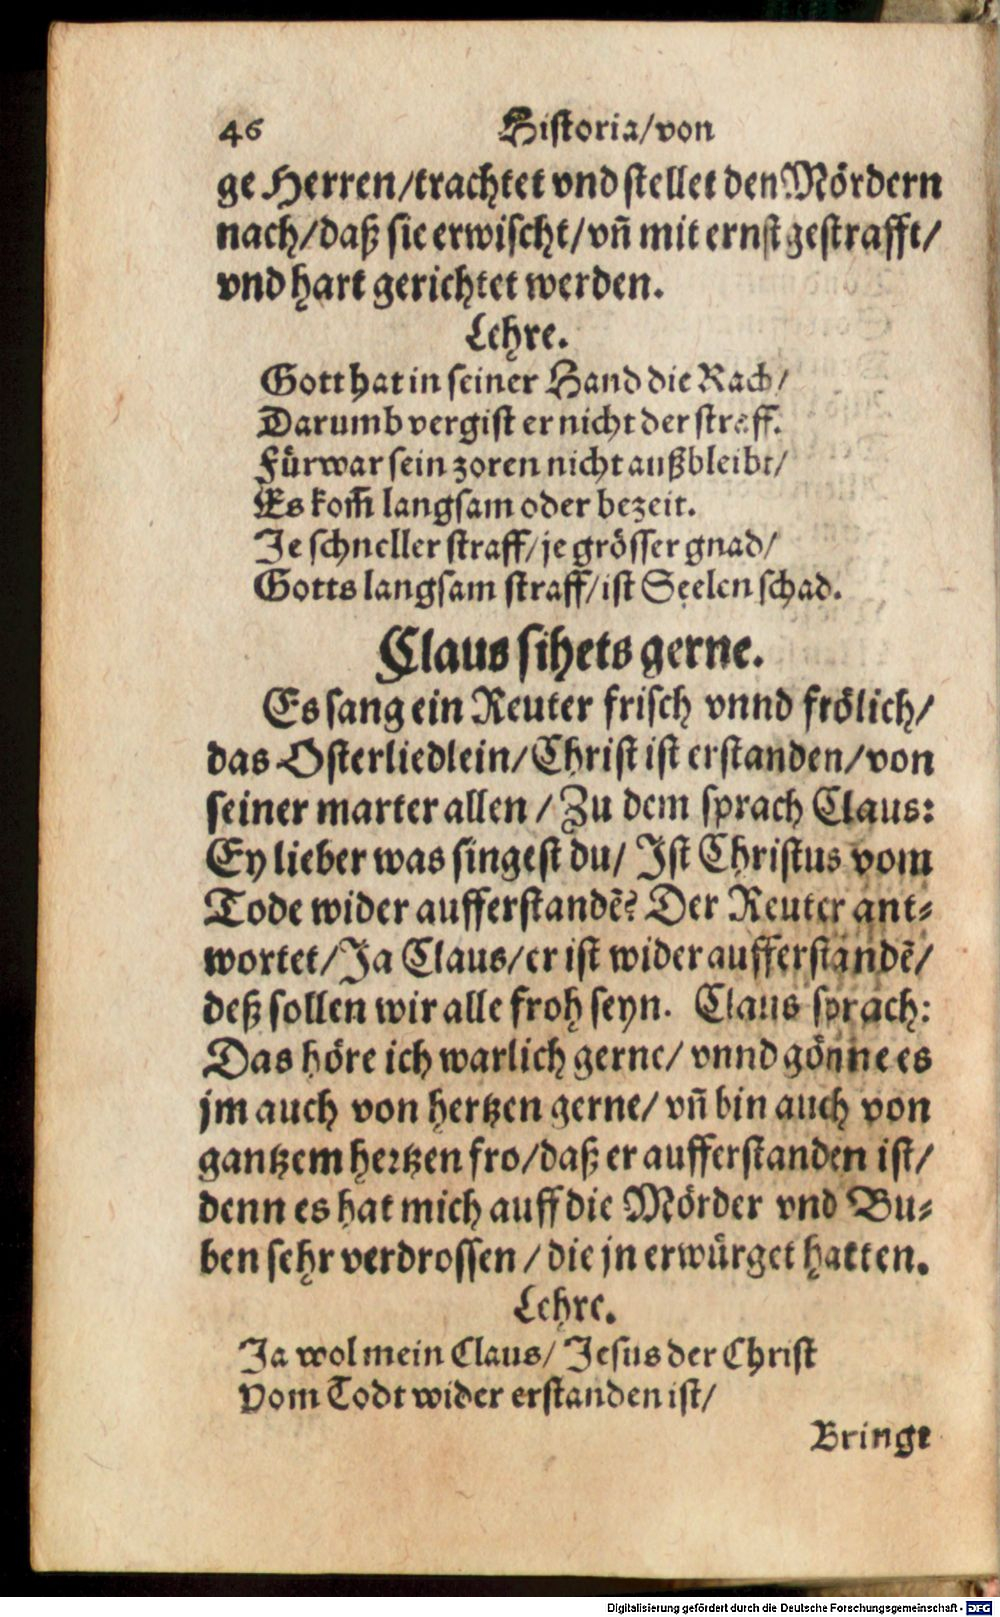 46 Historia/von
ge Herren/trachtet vnd stellet den Mördern
nach/daß sie erwischt/vñ mit ernst gestrafft/
vnd hart gerichtet werden.
Lehre.
Gott hat in seiner Hand die Rach/
Darumb vergist er nicht der straff.
Fürwar sein zoren nicht außbleibt/
Es kom̃ langsam oder bezeit.
Je schneller straff/je grösser gnad/
Gotts langsam straff/ist Seelen schad.
Claus sihets gerne.
Es sang ein Reuter frisch vnnd frölich/
das Osterliedlein/Christ ist erstanden/von
seiner marter allen / Zu dem sprach Claus:
Ey lieber was singest du/ Ist Christus vom
Tode wider aufferstandẽ? Der Reuter ant⸗
wortet/Ja Claus/er ist wider aufferstandẽ/
deß sollen wir alle froh seyn. Claus sprach:
Das höre ich warlich gerne/ vnnd gönne es
jm auch von hertzen gerne/ vñ bin auch von
gantzem hertzen fro/daß er aufferstanden ist/
denn es hat mich auff die Mörder vnd Bu⸗
ben sehr verdrossen / die jn erwürget hatten.
Lehre.
Ja wol mein Claus/ Jesus der Christ
Vom Todt wider erstanden ist/
Bringt
Digitalisierung gefördert durch die Deutsche Forschungsgemeinschaft - DFG